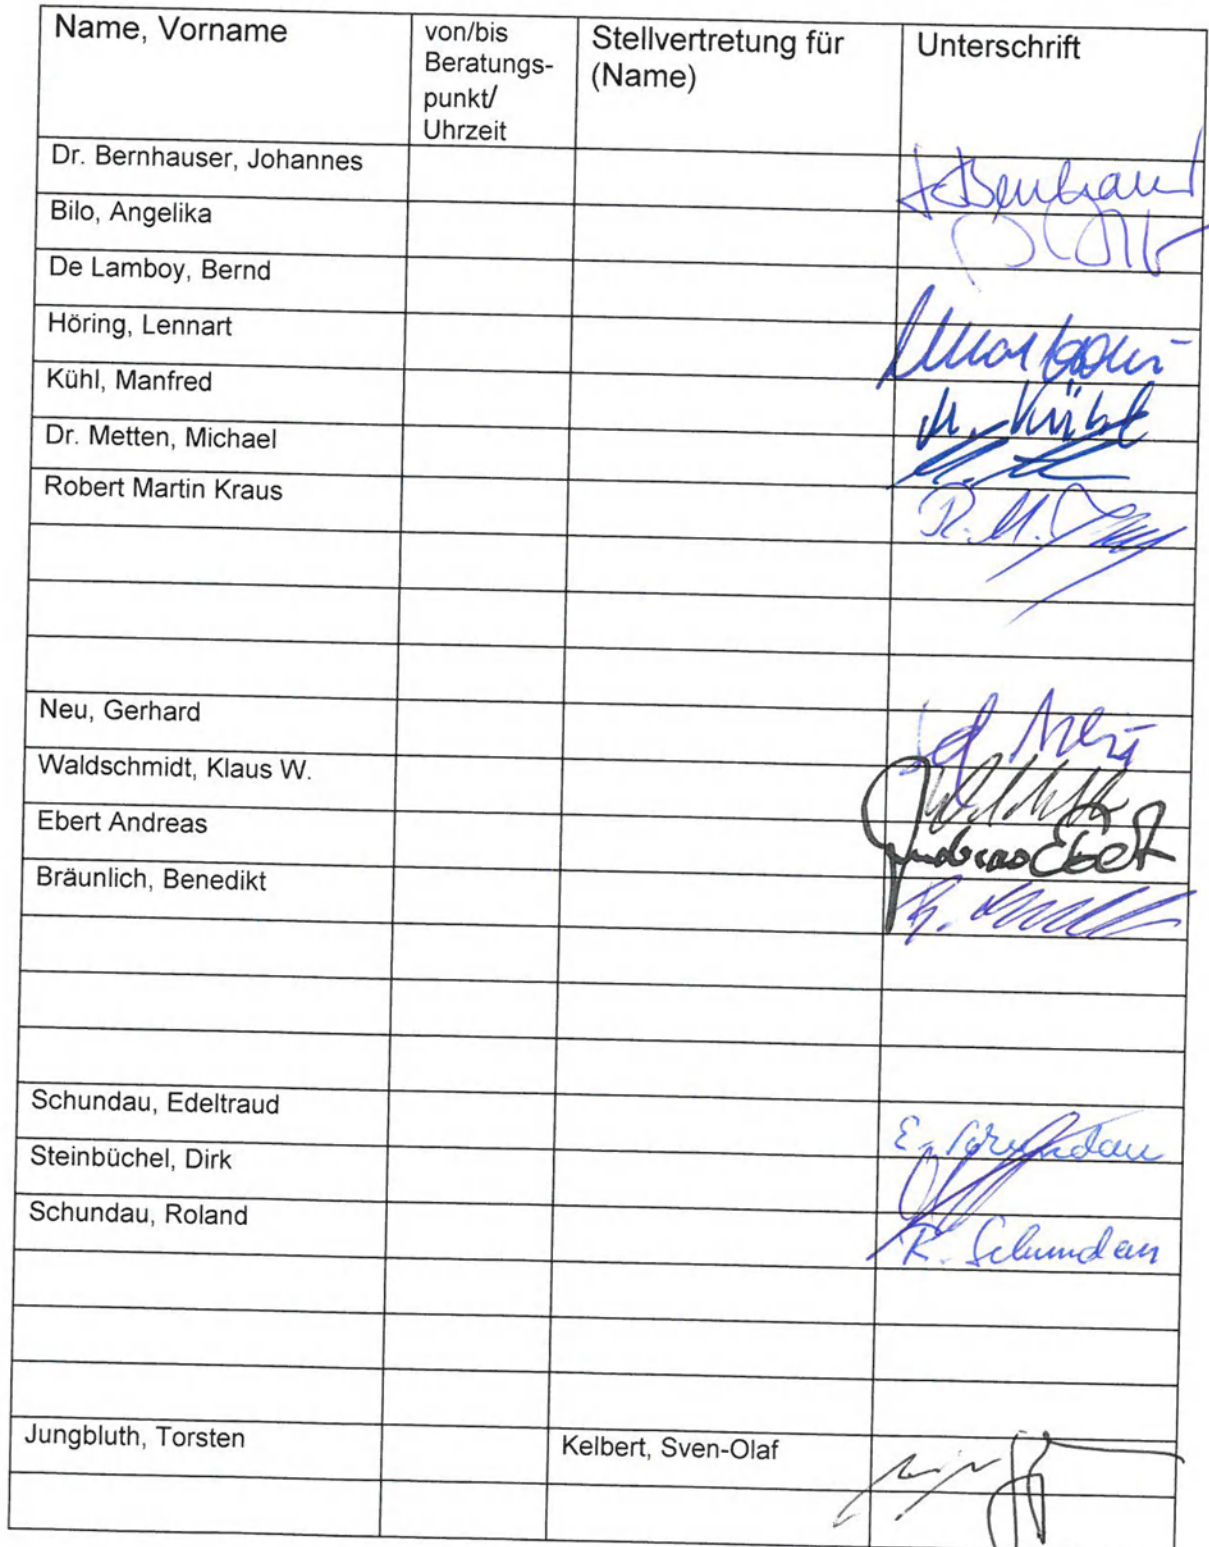 Name, Vorname
von/bis
Beratungs-
punkt/
Uhrzeit
Stellvertretung für
(Name)
Unterschrift
Dr. Bernhauser, Johannes
Bilo, Angelika
De Lamboy, Bernd
Höring, Lennart
Kühl, Manfred
M. Kühl
Dr. Metten, Michael
Robert Martin Kraus
R. M.
Neu, Gerhard
Neu
Waldschmidt, Klaus W.
Ebert Andreas
Andreas Ebert
Bräunlich, Benedikt
Schundau, Edeltraud
E. Schundau
Steinbüchel, Dirk
Schundau, Roland
R. Schundau
Jungbluth, Torsten Kelbert, Sven-Olaf